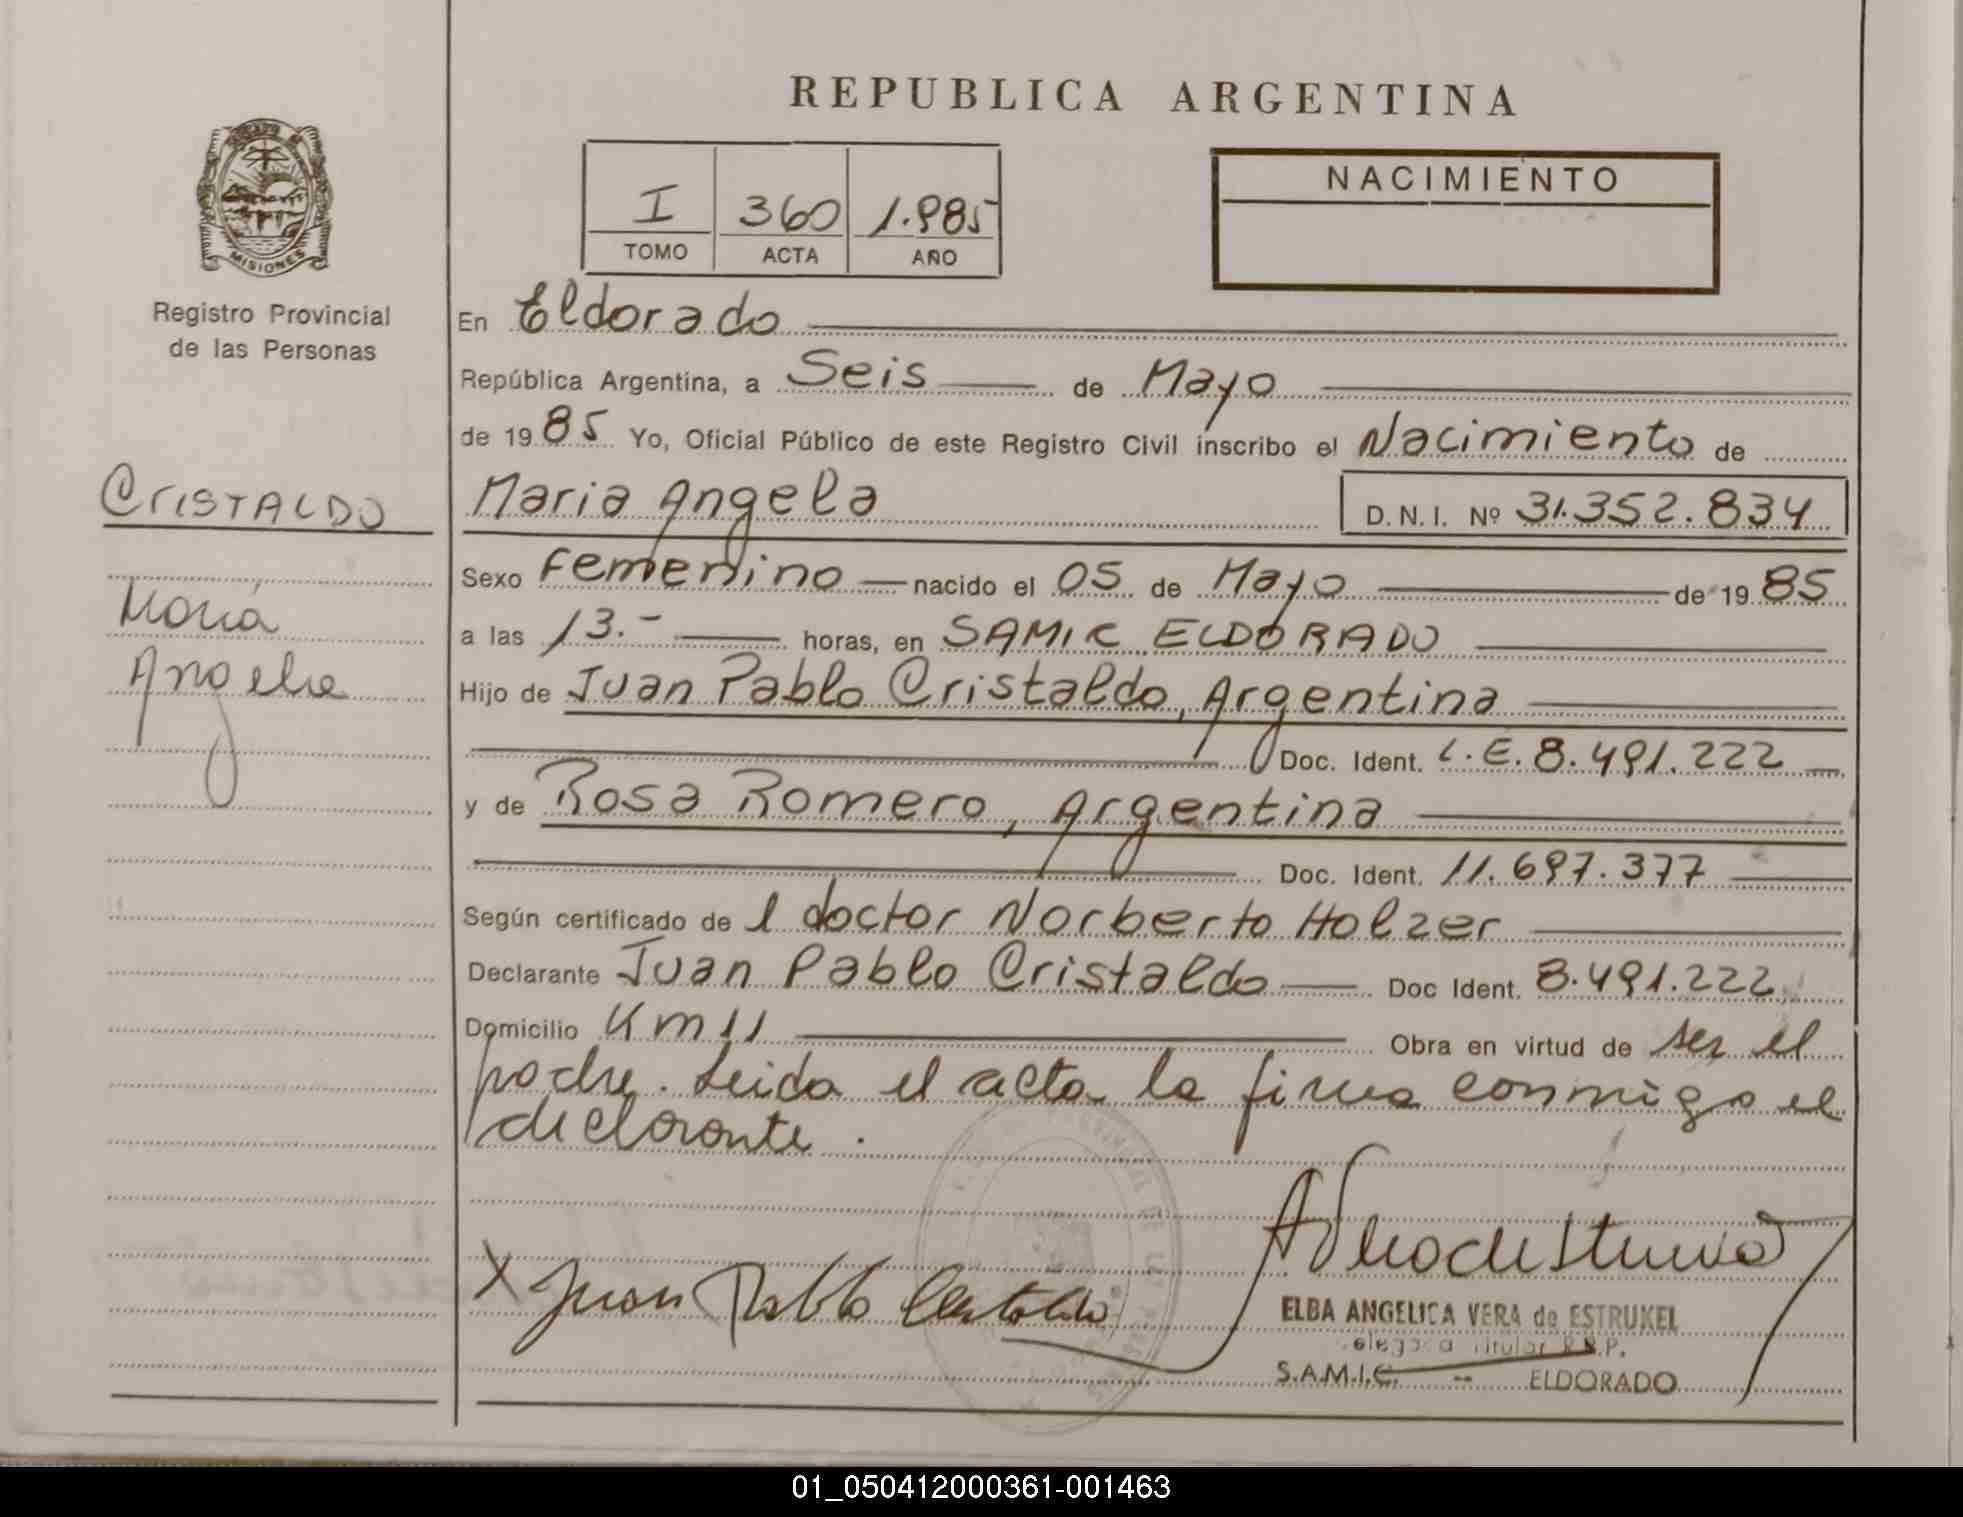 REPUBLICA ARGENTINA
MISIONES
Registro Provincial
de las Personas
I 360 1.985
TOMO ACTA AÑO
NACIMIENTO
En Eldorado
República Argentina, a Seis de Mayo
de 1985 Yo, Oficial Público de este Registro Civil inscribo el Nacimiento de
CRISTALDO
Maria Angela D.N.I. Nº 31.352.834
María
Angela
Sexo Femenino nacido el 05 de Mayo de 1985
a las 13.- horas, en SAMIC ELDORADO
Hijo de Juan Pablo Cristaldo, Argentina
Doc. Ident. L.E. 8.491.222
y de Rosa Romero, Argentina
Doc. Ident. 11.697.377
Según certificado del doctor Norberto Holzer
Declarante Juan Pablo Cristaldo Doc Ident. 8.491.222
Domicilio Km 11 Obra en virtud de ser el
padre. Leida el acta la firma conmigo el
declarante.
X Juan Pablo Cristaldo
ELBA ANGELICA VERA de ESTRUKEL
Titular R.P.
S.A.M.I.C. -- ELDORADO
01_050412000361-001463